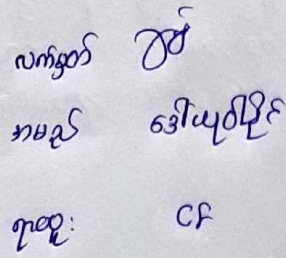 လက်မှတ်
အမည် ဒေါ်ယုဝါခိုင်
ရာထူး CF